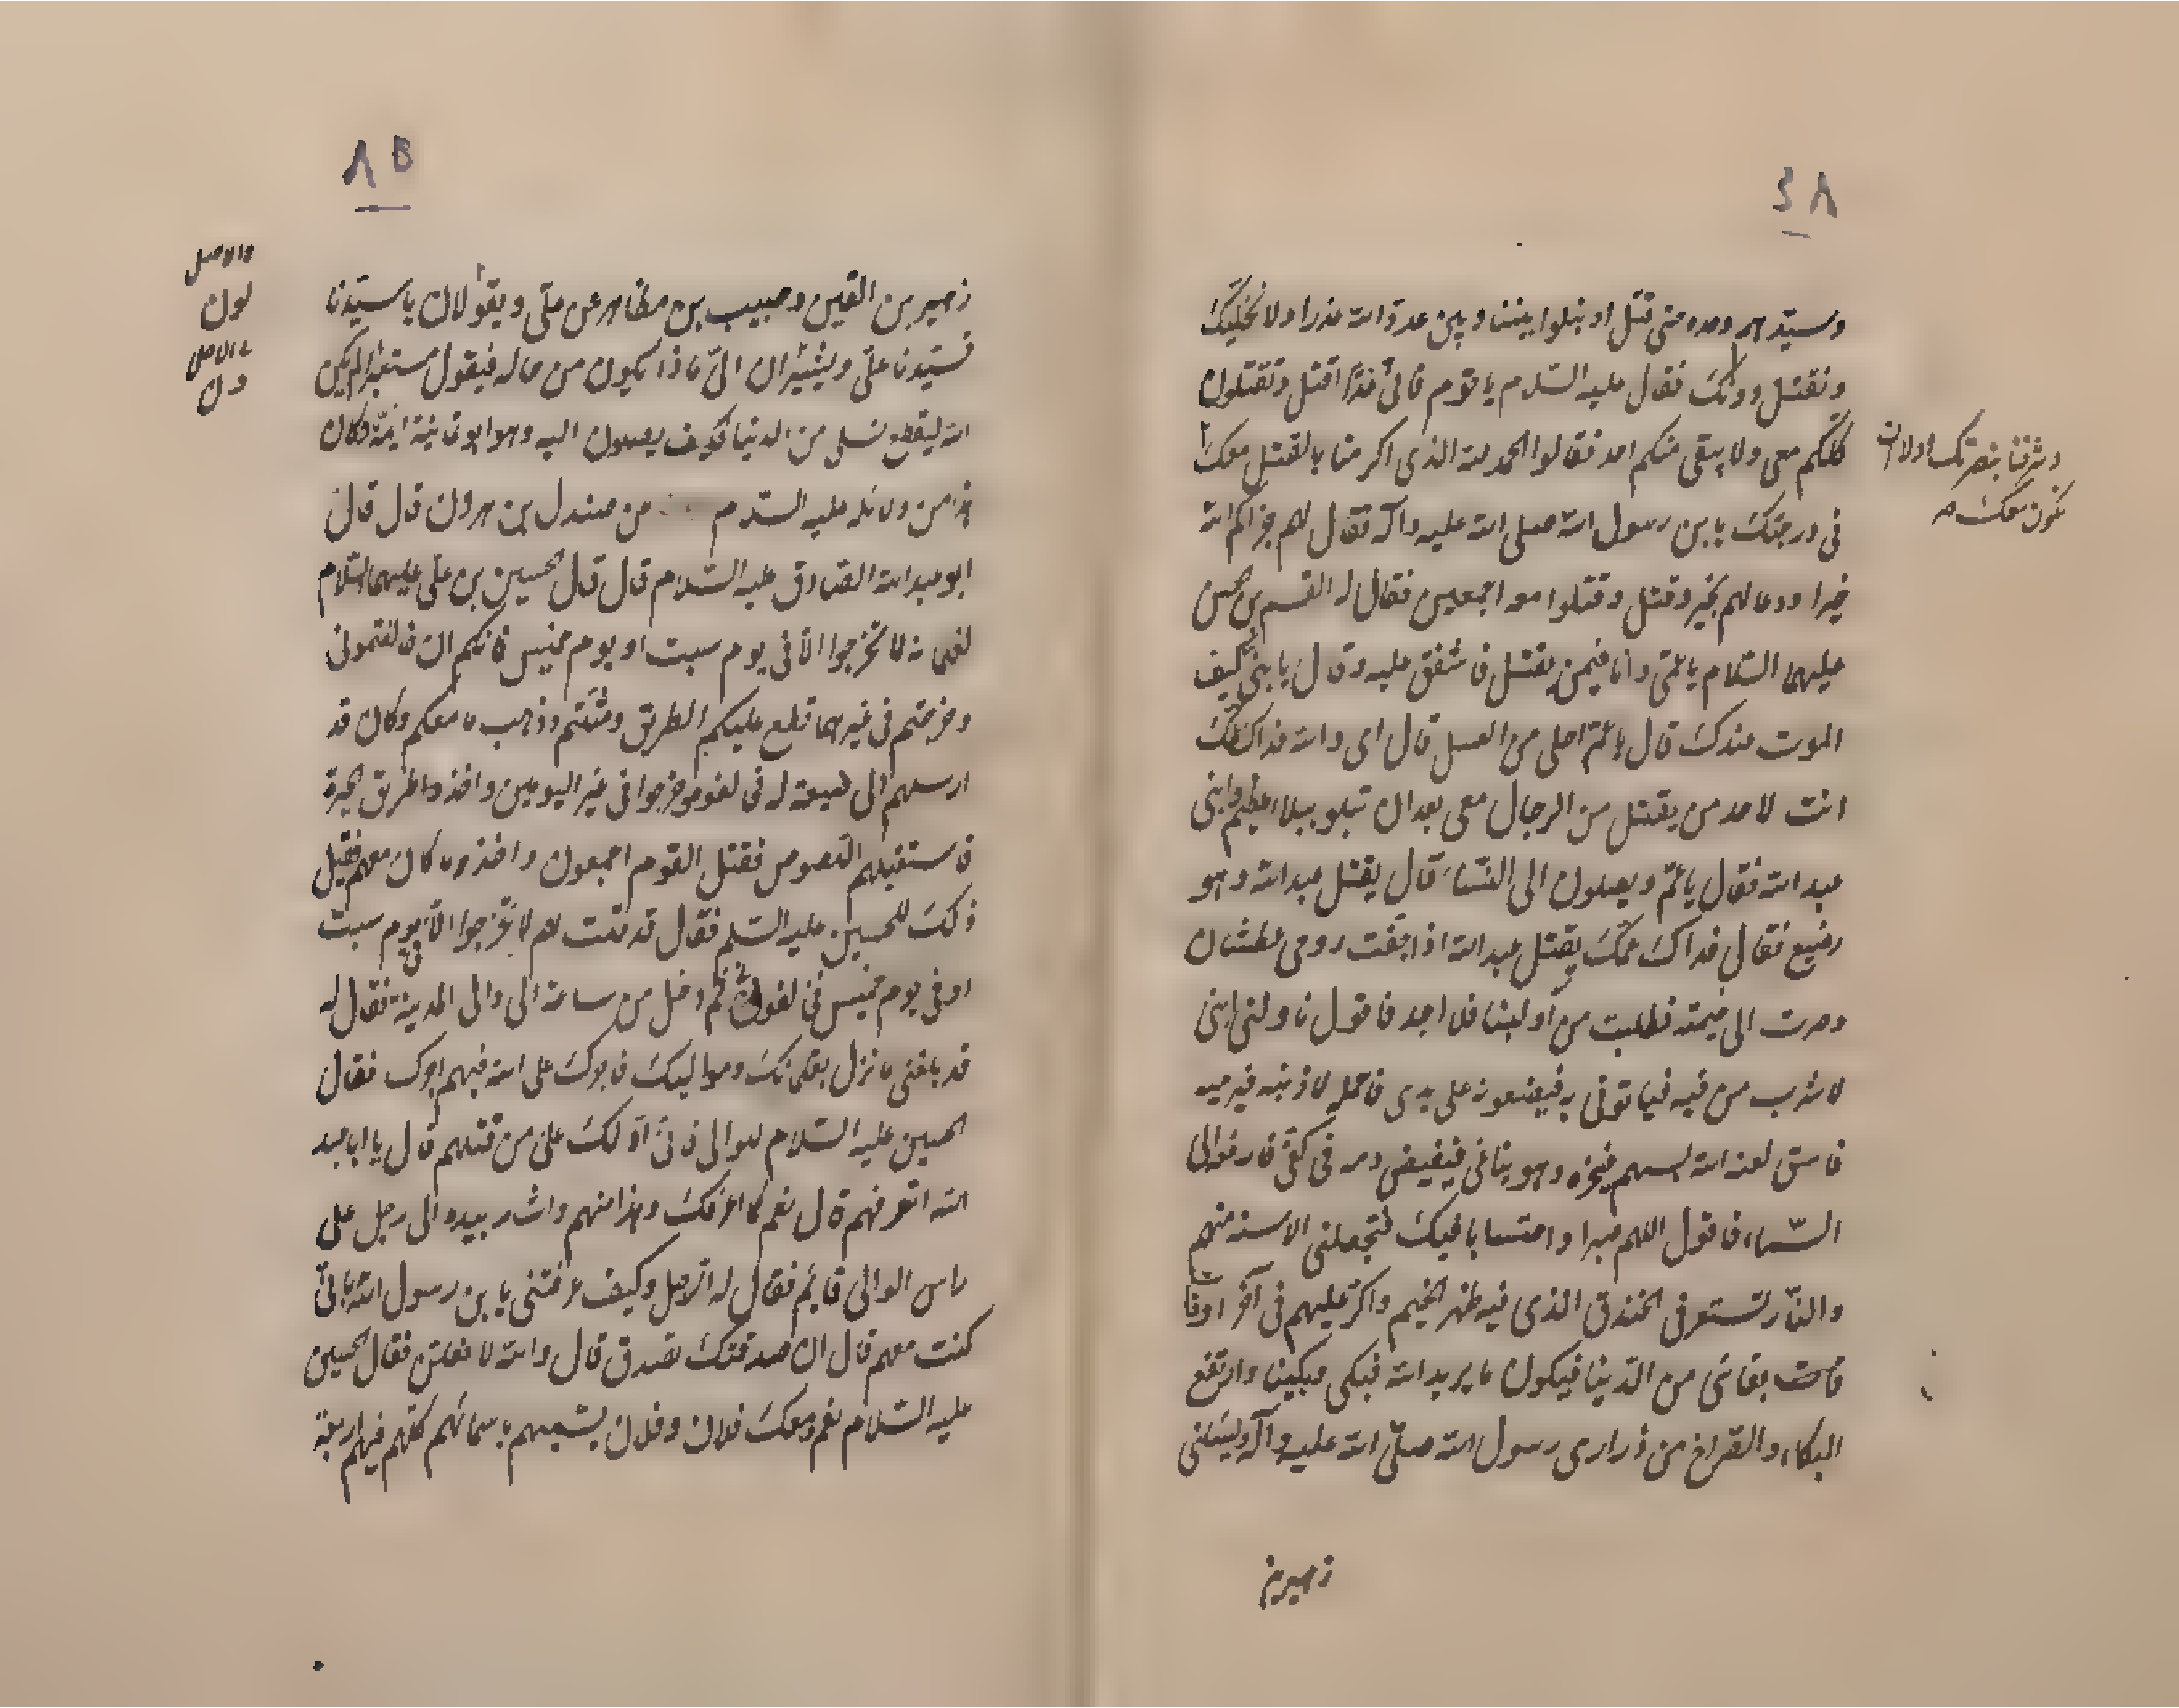 ٨٤
وسيدهم وحده حتى قتل او ببلوا بيننا وبين عدو الله عذرا ولا نخليك
ونقتل دونك فقال عليه السلام يا قوم فانى غدا اقتل وتقتلون
كلكم معى ولا يبقى منكم احد فقالوا الحمد لله الذى اكرمنا بالقتل معك
وشرفنا بنصرتك اولا ان
نكون معك
فى درجتك يا بن رسول الله صلى الله عليه وآله فقال لهم جزاكم الله
خيرا ودعا لهم بخير وقتل وقتلوا معه اجمعين فقال له القسم بن الحسن
عليهما السلام يا عمى وانا فيمن يقتل فاشفق عليه وقال يا بنى كيف
الموت عندك قال يا عم احلى من العسل قال اى والله فداك عمك
انت لاحد من يقتل من الرجال معى بعد ان تبلو ببلاء عظيم وابنى
عبد الله فقال يا عم ويصلون الى النساء قال يقتل عبد الله وهو
رضيع فقال فداك عمك يقتل عبد الله اذا جفت روحى عطشان
وصرت الى خيمنه فطلبت من او لبنا فلا اجد فاقول ناولنى ابنى
لاشرب من فيه فياتونى به فيضعونه على يدى فاحمله لادنيه فيرميه
فاسق لعنه الله بسهم فينحره وهو يناغى فيفيض دمه فى كفى فارفعه الى
السماء فاقول اللهم صبرا واحتسابا فيك فتجعلنى الاسنة منهم
والنار تستعر فى الخندق الذى فيه ظهر الخيم واكر عليهم فى آخر اوقات
بقائى من الدنيا فيكون ما يريد الله فبكى وبكينا وارتفع
البكاء والصراخ من ذرارى رسول الله صلى الله عليه وآله ويسئلنى
زهير بن
زهير بن القين وحبيب بن مظاهر عن على ويقولان يا سيدنا
فسيدنا على ويشيران الى ماذا يكون من حاله فيقول مستعبرا لم يكن
الله ليقطع نسلى من الدنيا فكيف يصلون اليه وهو ابو ثمانية ائمة وكان
هذا من دلائله عليه السلام من صندل بن هرون قال قال
ابو عبد الله الصادق عليه السلام قال قال الحسين بن على عليهما السلام
لغلمانه لا تخرجوا الا فى يوم سبت او يوم خميس فانكم ان خالفتمونى
وخرجتم فى غيرهما قطع عليكم الطريق وقتلتم وذهب ما معكم وكان قد
ارسلهم الى ضيعة له فخالفوه وخرجوا فى غير اليومين واخذوا طريق الحرة
فاستقبلهم اللصوص فقتل القوم اجمعون واخذوا ما كان معهم فقيل
ذلك للحسين عليه السلم فقال قد قلت لهم لا تخرجوا الا فى يوم سبت
او فى يوم خميس فخالفونى ثم دخل من ساعة الى والى المدينة فقال له
قد بلغنى ما نزل بغلمانك ومواليك فاجرك على الله فيهم اجرك فقال
الحسين عليه السلام للوالى فانى ادلك على من قتلهم قال يا ابا عبد
الله اتعرفهم قال نعم كما اعرفك وهذا منهم واشار بيده الى رجل على
راس الوالى قائم فقال له الرجل وكيف عرفتنى يا بن رسول الله بانى
كنت معهم قال ان صدقتك تصدق قال والله لافعلن فقال الحسين
عليه السلام نعم ومعك فلان وفلان يسميهم باسمائهم كلهم فيهم اربعة